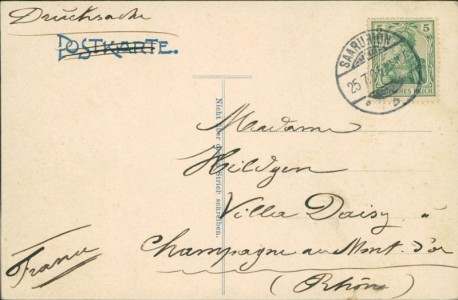 Drucksache
POSTKARTE.
5 5
SAARUNION
25.7
DEUTSCHES REICH
Nicht über den Strich schreiben.
Madame
Hildgen
Villa Daisy à
Champagne au Mont d'or
(Rhône)
France